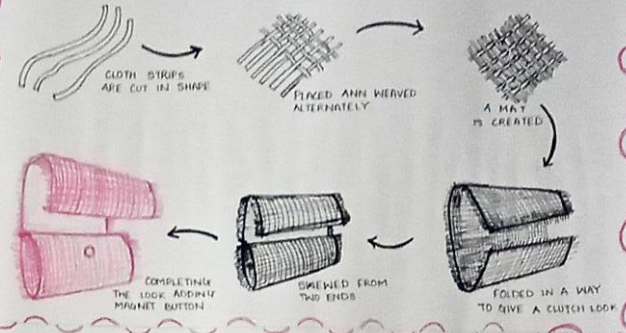 CLOTH STRIPS
ARE CUT IN SHAPE
PLACED ANN WEAVED
ALTERNATELY
A MAT
IS CREATED
FOLDED IN A WAY
TO GIVE A CLUTCH LOOK
SWEWED FROM
TWO ENDS
COMPLETING
THE LOOK ADDING
MAGNET BUTTON